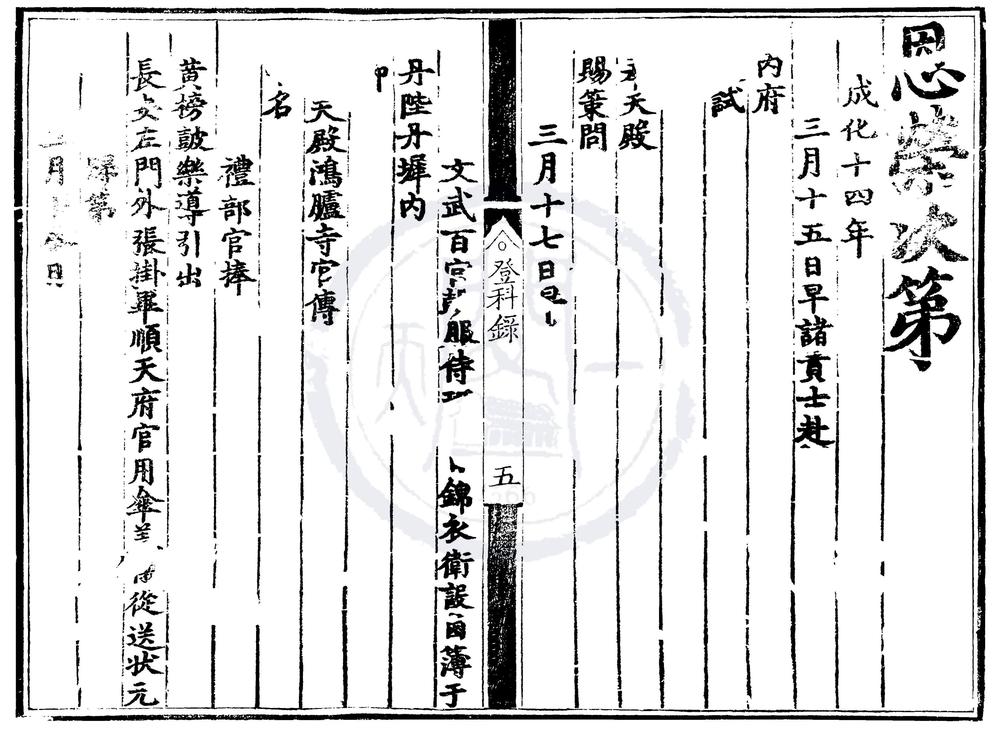 恩榮次第
成化十四年
三月十五日早諸貢士赴
內府
試
天殿
賜策問
三月十七日
登科錄
五
文武百官 服侍 錦衣衛設 薄于
丹陛丹墀內
天殿鴻臚寺官傳
名
禮部官捧
黃榜鼓樂導引出
長安左門外張掛畢順天府官用傘 從送狀元
第
月 日